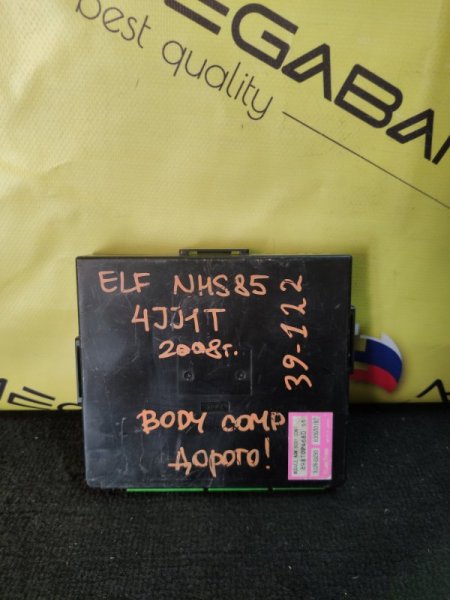 EGABA
best quality
ELF NHS85
4JJ1T
2008г.
39-122
BODY COMP
Дорого!